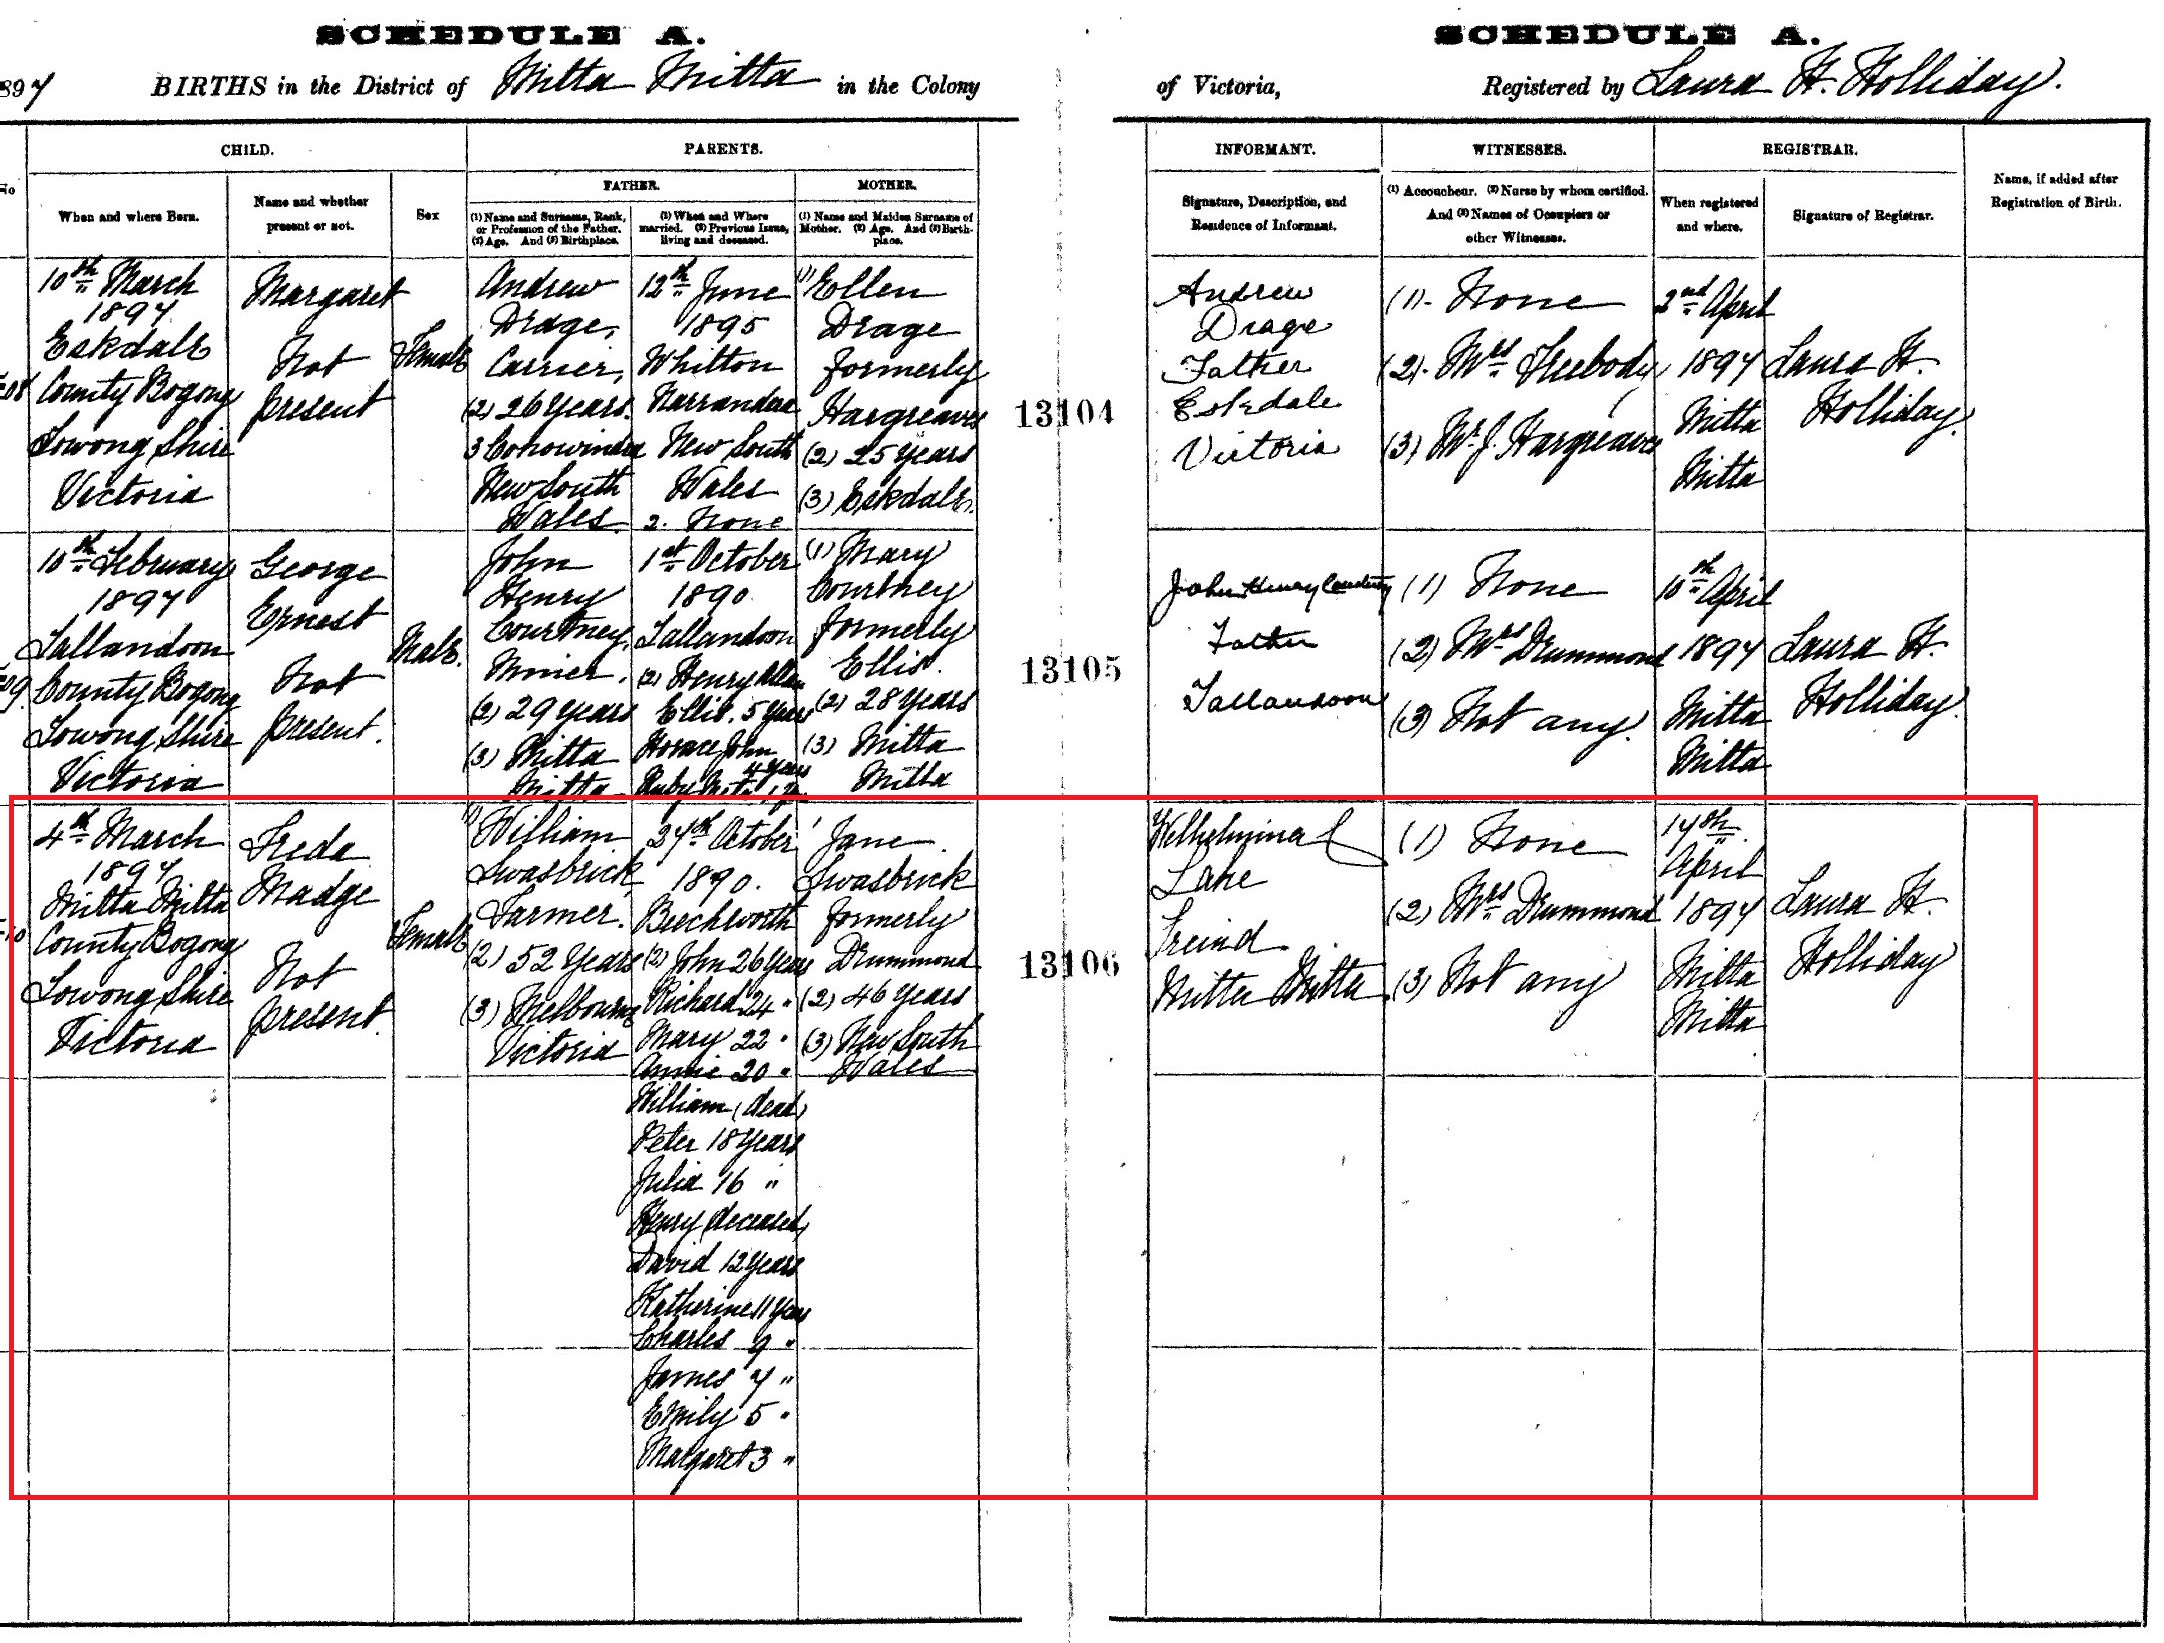 SCHEDULE A.
SCHEDULE A.
897 BIRTHS in the District of Mitta Mitta in the Colony
of Victoria, Registered by Laura H. Holliday.
CHILD.
PARENTS.
INFORMANT.
WITNESSES.
REGISTRAR.
No
When and where Born.
Name and whether
present or not.
Sex
FATHER.
(1) Name and Surname, Rank,
or Profession of the Father.
(2) Age. And (3) Birthplace.
(1) When and Where
married. (2) Previous Issue,
living and deceased.
MOTHER.
(1) Name and Maiden Surname of
Mother. (2) Age. And (3) Birth-
place.
Signature, Description, and
Residence of Informant.
(1) Accoucheur. (2) Nurse by whom certified.
And (3) Names of Occupiers or
other Witnesses.
When registered
and where.
Signature of Registrar.
Name, if added after
Registration of Birth.
10th March
1897
Eskdale
County Bogong
Towong Shire
Victoria
Margaret
Not
present
Female
Andrew
Drage,
Carrier,
(2) 26 Years.
3 Cohowindra
New South
Wales
12th June
1895
Whitton
Narrandera
New South
Wales
2. None
(1) Ellen
Drage
formerly
Hargreaves
(2) 25 Years
(3) Eskdale.
13104
Andrew
Drage
Father
Eskdale
Victoria
(1). None
(2). Mrs Freebody
(3) Mr J. Hargreaves
2nd April
1897
Mitta
Mitta
Laura H.
Holliday.
10th February
1897
Tallandoon
County Bogong
Towong Shire
Victoria
George
Ernest
Not
present.
Male.
John
Henry
Courtney,
Miner.
(2) 29 Years
(3) Mitta
Mitta
1st October
1890
Tallandoon
(2) Henry Allen
Ellis. 5 Years
Horace John
4 Years
Ruby
(1) Mary
Courtney
formerly
Ellis.
(2) 28 Years
(3) Mitta
Mitta
13105
John Henry Courtney
Father
Tallandoon
(1) None
(2) Mrs Drummond
(3) Not any.
10th April
1897
Mitta
Mitta
Laura H.
Holliday.
4th March
1897
Mitta Mitta
County Bogong
Towong Shire
Victoria
Freda
Madge
Not
present.
Female
(1) William
Swasbrick,
Farmer.
(2) 52 Years
(3) Melbourne
Victoria
27th October
1890.
Beechworth
(2) John 26 Years
Richard 24 "
Mary 22 "
Annie 20 "
William (dead)
Peter 18 Years
Julia 16 "
Henry (deceased)
David 12 Years
Katherine 11 Years
Charles 9 "
James 7 "
Emily 5 "
Margaret 3 "
Jane
Swasbrick
formerly
Drummond
(2) 46 Years
(3) New South
Wales
13106
Welhelmina
Lake
Freind
Mitta Mitta
(1) None
(2) Mrs Drummond
(3) Not any
14th
April
1897
Mitta
Mitta
Laura H.
Holliday